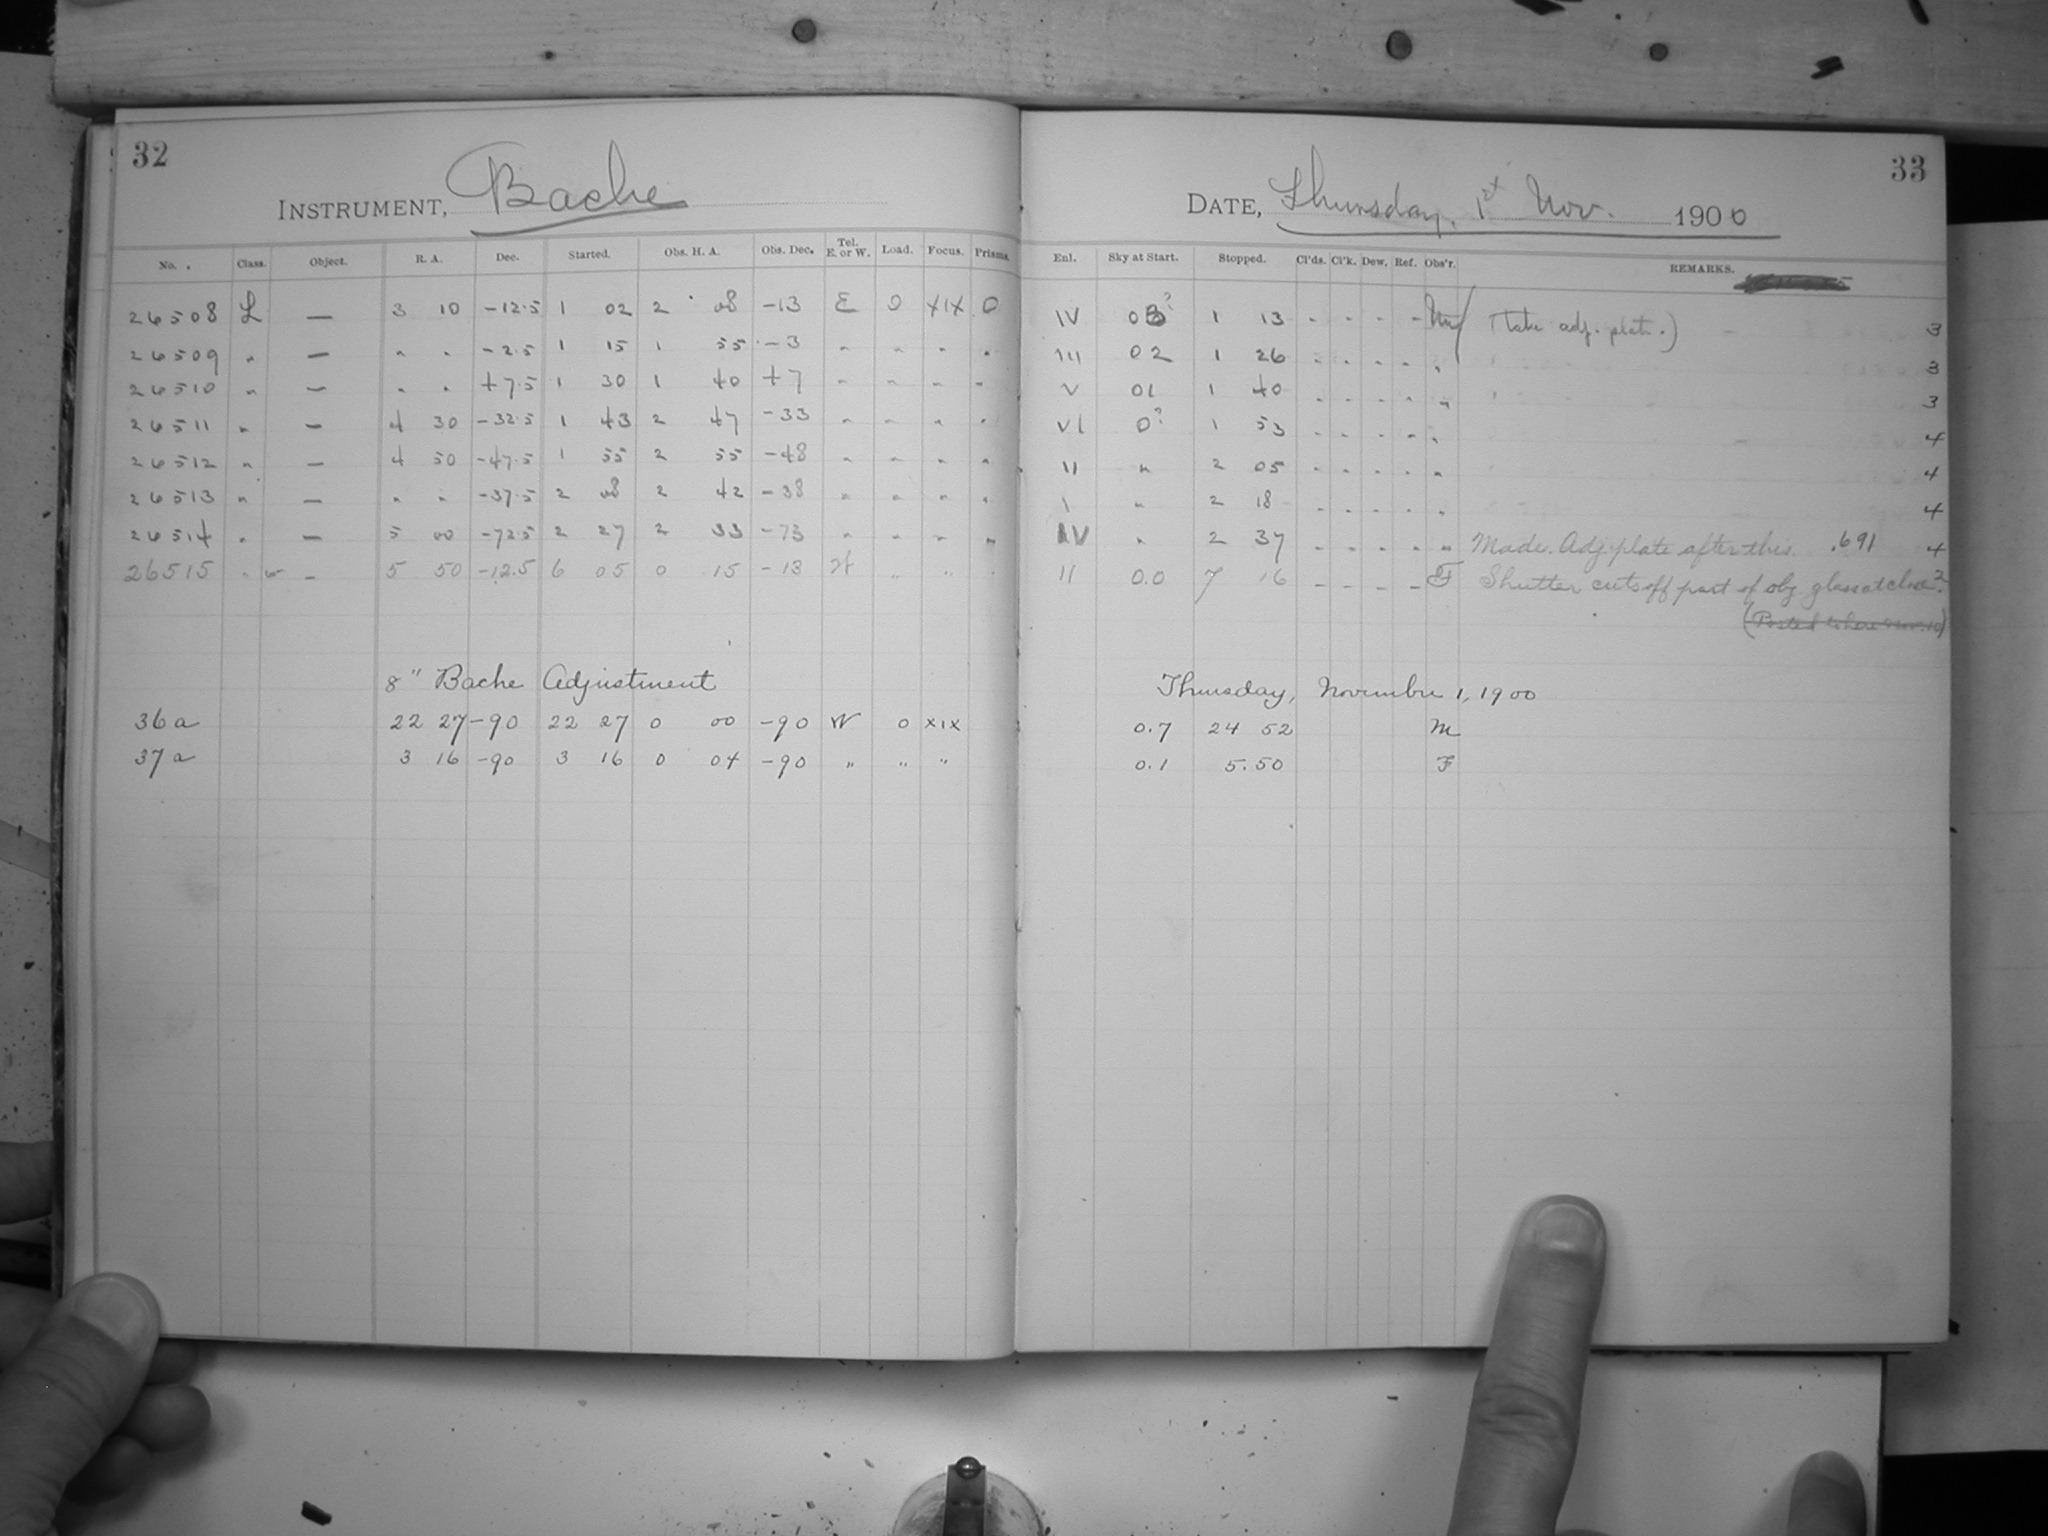 32
INSTRUMENT, Bache
No. Class. Object. R. A. Dec. Started. Obs. H. A. Obs. Dec. Tel. E. or W. Load. Focus. Prisms.
26508 L — 3 10 -12.5 1 02 2 08 -13 E 0 XIX 0
26509 " — " " -2.5 1 15 1 55 -3 " " " "
26510 " — " " +7.5 1 30 1 40 +7 " " " "
26511 " — 4 30 -32.5 1 43 2 47 -33 " " " "
26512 " — 4 50 -47.5 1 55 2 55 -48 " " " "
26513 " — " " -37.5 2 08 2 42 -38 " " " "
26514 " — 5 00 -72.5 2 27 2 33 -73 " " " "
26515 " — 5 50 -12.5 6 05 0 15 -13 W " " "
8" Bache Adjustment
36a 22 27 -90 22 27 0 00 -90 W 0 XIX
37a 3 16 -90 3 16 0 04 -90 " " "
33
DATE, Thursday, 1st Nov. 1900
Enl. Sky at Start. Stopped. Cl'ds. Cl'k. Dew. Ref. Obs'r. REMARKS.
IV 03? 1 13 - - - - (Take adj. plate.) 3
III 02 1 26 - - - - " 3
V 01 1 40 - - - - " 3
VI 0? 1 53 - - - - " 4
II " 2 05 - - - - " 4
I " 2 18 - - - - " 4
IV " 2 37 - - - - " Made Adj. plate after this. .691 4
II 0.0 7 16 - - - - F Shutter cuts off part of obj glass at close. 2
(Posted to here Nov. 10)
Thursday, November 1, 1900
0.7 24 52 M
0.1 5.50 F